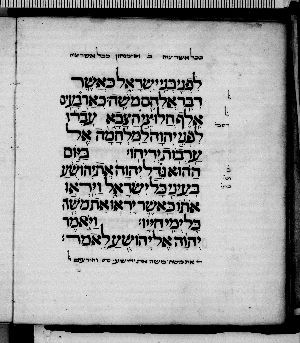 לפני בני ישראל כאשר
דבר אלהם משה כארבעים
אלף חלוצי הצבא עברו
לפני יהוה למלחמה אל
ערבות יריחו ביום
ההוא גדל יהוה את יהושע
בעיני כל ישראל ויראו
אתו כאשר יראו את משה
כל ימי חייו ויאמר
יהוה אל יהושע לאמר